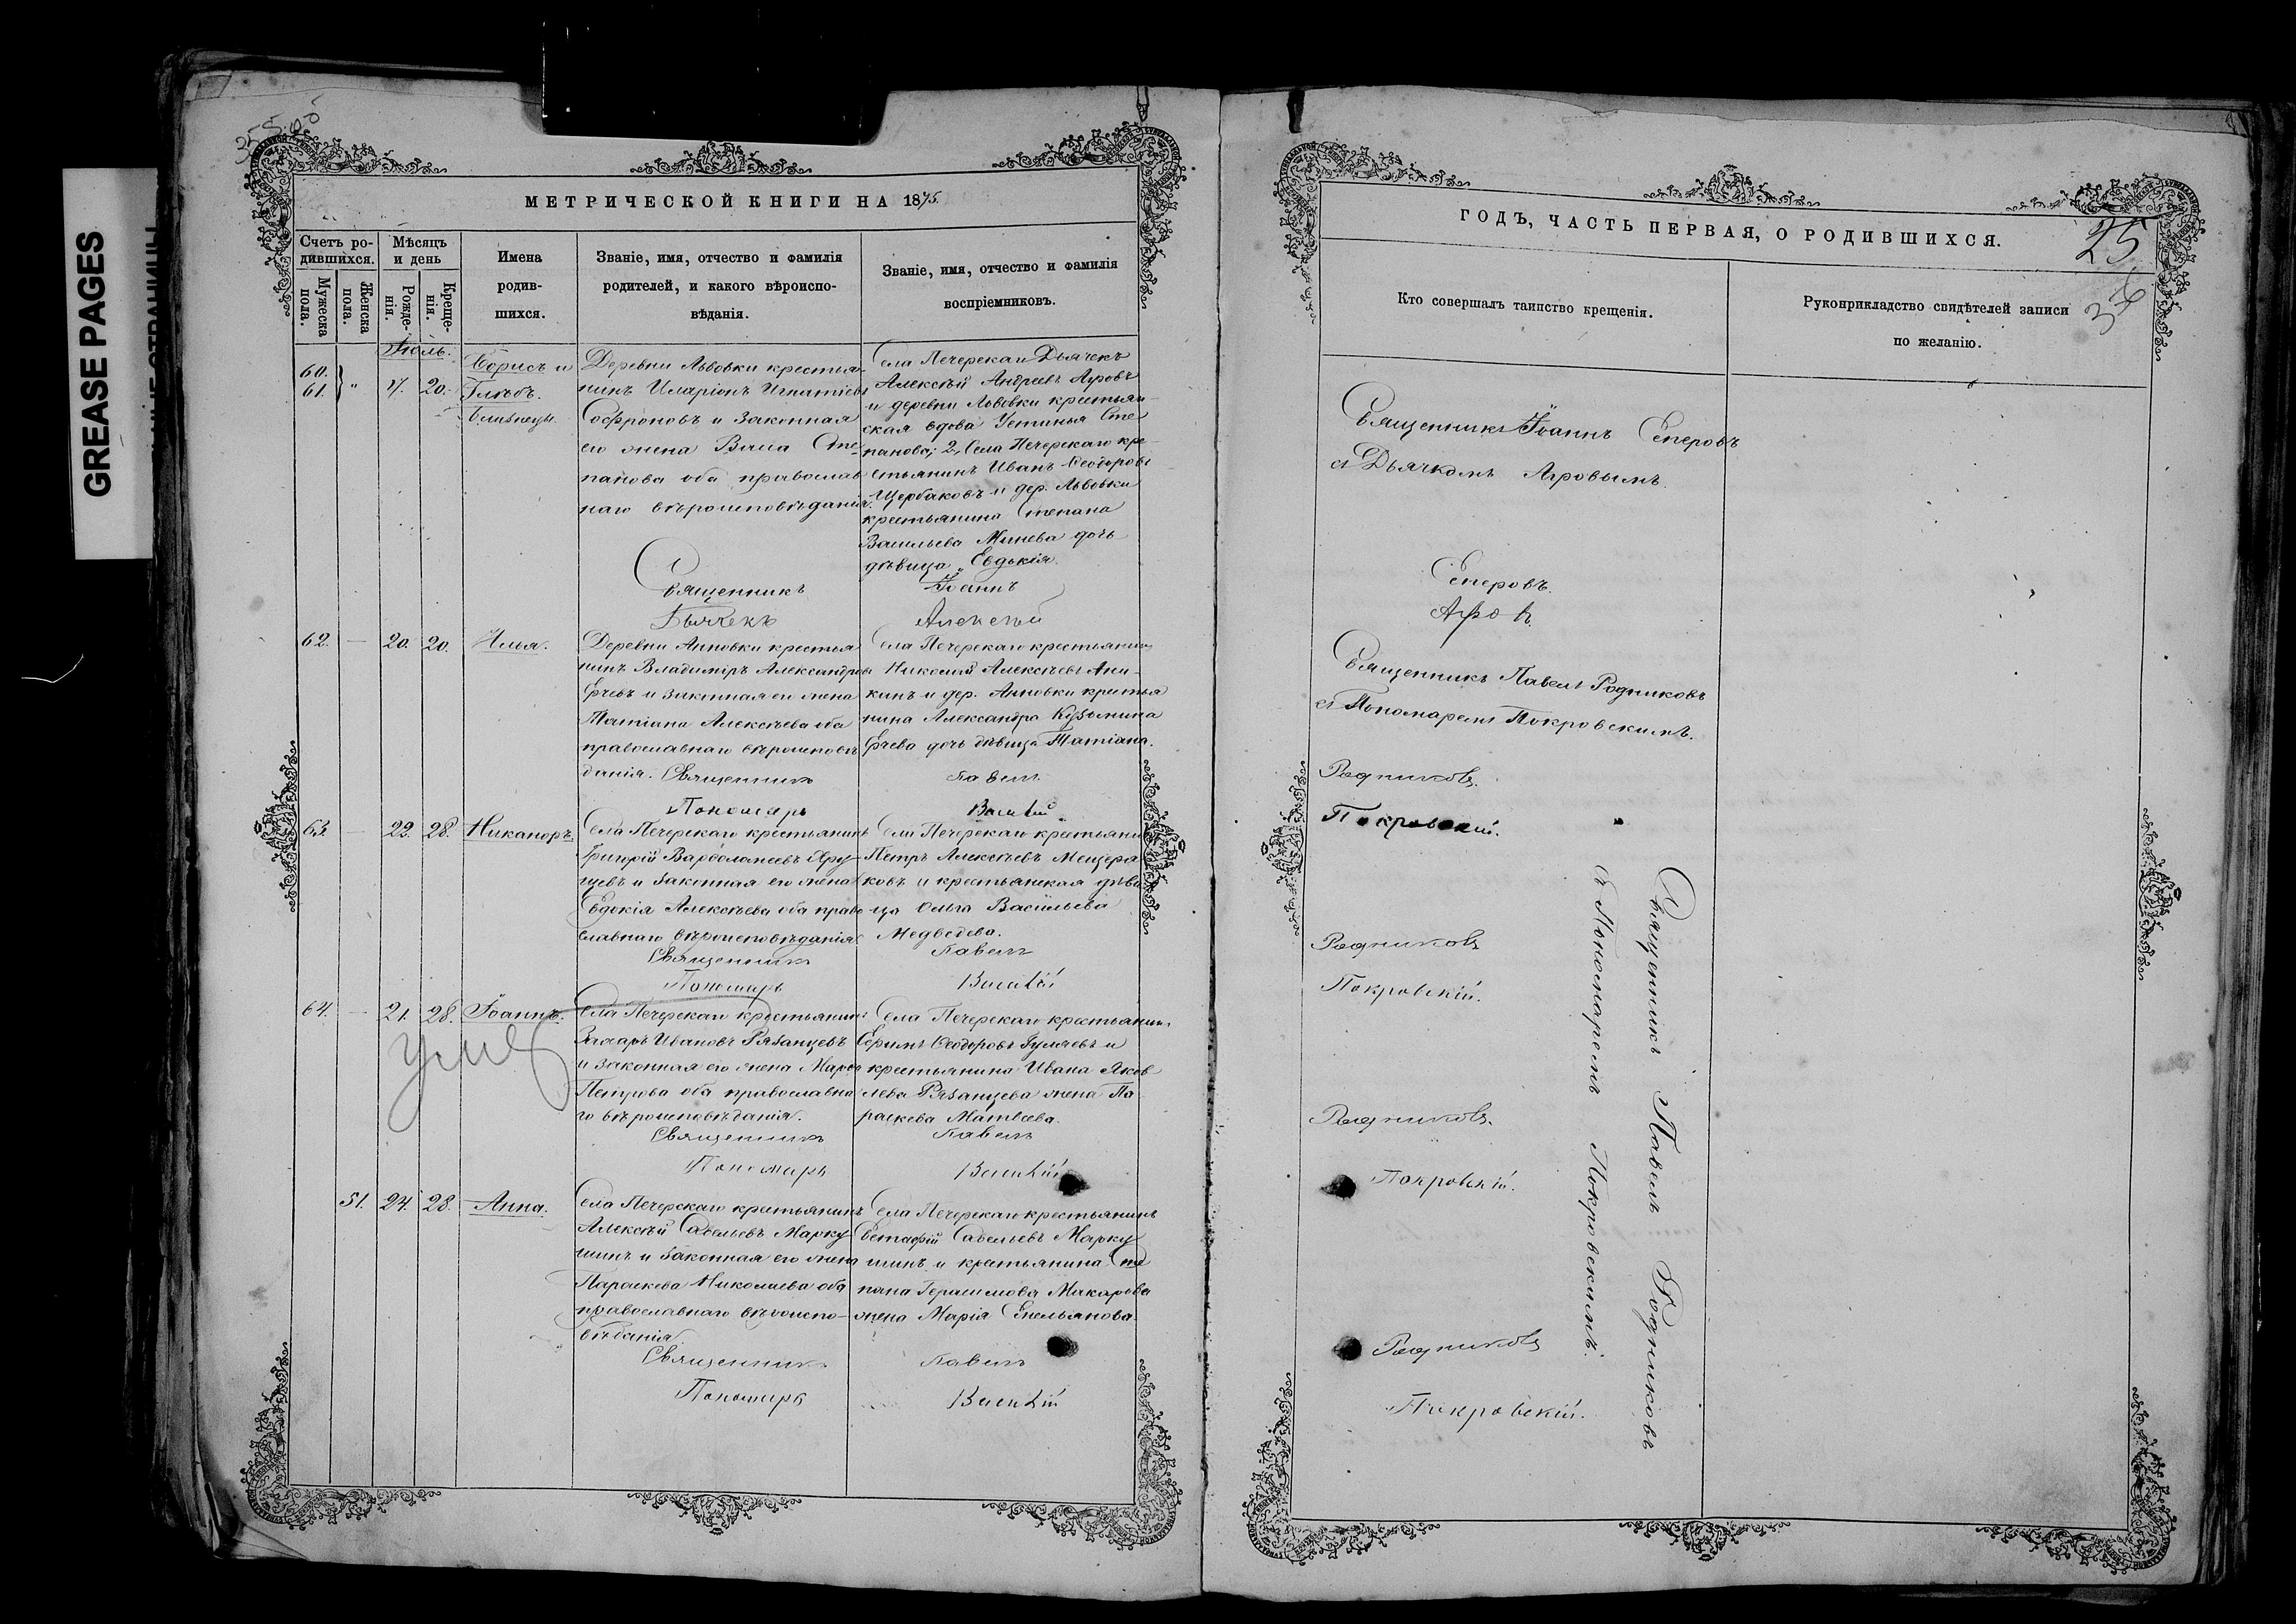 GREASE PAGES
МЕТРИЧЕСКОЙ КНИГИ НА 1875.
Счетъ ро-
дившихся.
Мужеска
пола.
Женска
пола.
Мѣсяцъ
и день
Рожде-
нія.
Креще-
нія.
Имена
родив-
шихся.
Званіе, имя, отчество и фамилія
родителей, и какого вѣроиспо-
вѣданія.
Званіе, имя, отчество и фамилія
воспріемниковъ.
Іюль.
60.
61.
"
20.
Борисъ и
Глѣбъ.
Близнецы.
Деревни Львовки крестья-
нинъ Иларіонъ Игнатіевъ
Софроновъ и законная
его жена Васса Сте-
панова оба православ
наго вѣроисповѣданія.
Священникъ
Дьячекъ
Села Печерскаго Дьячекъ
Алексѣй Андреевъ Агровъ
и деревни Львовки крестьян-
ская вдова Устинья Сте
панова; 2, Села Печерскаго кре-
стьянинъ Иванъ Ѳеодоровъ
Щербаковъ и дер. Львовки
крестьянина Степана
Васильева Минева дочь
дѣвица Евдокія.
Іоаннъ
Алексѣй
62.
—
20.
20.
Илья.
Деревни Анновки крестья
нинъ Владиміръ Александровъ
Ерчевъ и законная его жена
Татіана Алексѣева оба
православнаго вѣроисповѣ
данія. Священникъ
Пономарь
Села Печерскаго крестьянинъ
Николай Алексѣевъ Ани-
кинъ и дер. Анновки крестья
нина Александра Кузьмина
Ерчева дочь дѣвица Татіана.
Павелъ
Василій
63.
—
22.
28.
Никаноръ.
Села Печерскаго крестьянинъ
Григорій Варѳоломеевъ Яру-
щевъ и законная его жена
Евдокія Алексѣева оба право
славнаго вѣроисповѣданія.
Священникъ
Пономарь
Села Печерскаго крестьянинъ
Петръ Алексѣевъ Мещеря
ковъ и крестьянская дѣви
ца Ольга Васильева
Медведева.
Павелъ
Василій
64.
—
21.
28.
Іоаннъ.
Села Печерскаго крестьянинъ
Захаръ Ивановъ Рязанцевъ
и законная его жена Марѳа
Петрова оба православна
го вѣроисповѣданія.
Священникъ
Пономарь
Села Печерскаго крестьянинъ
Ефимъ Ѳеодоровъ Гуляевъ и
крестьянина Ивана Яков
лева Рязанцева жена Па
раскева Матвѣева.
Павелъ
Василій
51.
24.
28.
Анна.
Села Печерскаго крестьянинъ
Алексѣй Савельевъ Марку-
шинъ и законная его жена
Параскева Николаева оба
православнаго вѣроиспо-
вѣданія.
Священникъ
Пономарь
Села Печерскаго крестьянинъ
Евстафій Савельевъ Марку
шинъ и крестьянина Сте
пана Герасимова Макарова
жена Марія Емельянова.
Павелъ
Василій
ГОДЪ, ЧАСТЬ ПЕРВАЯ, О РОДИВШИХСЯ.
25
Кто совершалъ таинство крещенія.
Рукоприкладство свидѣтелей записи
по желанію.
Священникъ Іоаннъ Сеперовъ
съ Дьячкомъ Агровымъ.
Сеперовъ.
Священникъ Павелъ Родниковъ
съ Пономаремъ Покровскимъ.
Родниковъ.
Покровскій.
Священникъ Павелъ Родниковъ
съ Пономаремъ Покровскимъ.
Родниковъ
Покровскій.
Родниковъ.
Покровскій.
Родниковъ
Покровскій.